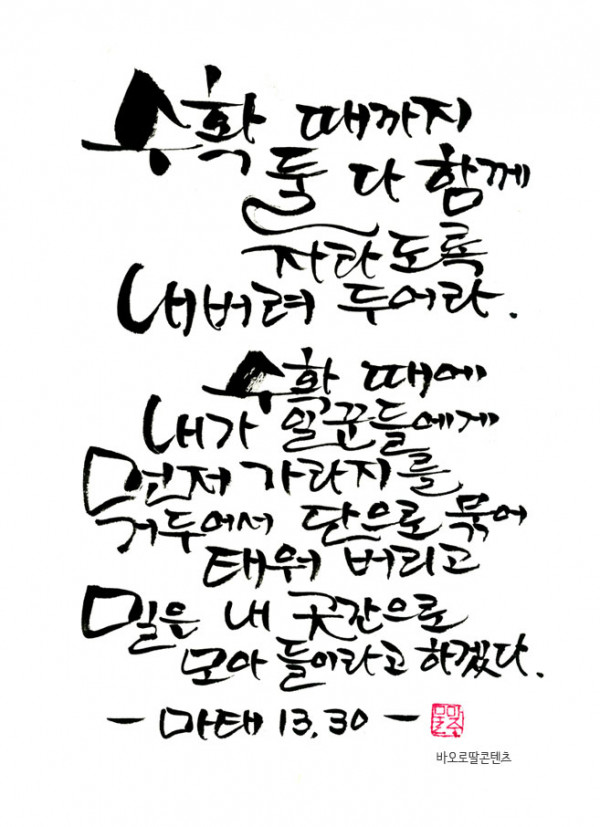 수확 때까지
둘 다 함께
자라도록
내버려 두어라.
수확 때에
내가 일꾼들에게
먼저 가라지를
거두어서 단으로 묶어
태워 버리고
밀은 내 곳간으로
모아 들이라고 하겠다.
- 마태 13,30 -
바오로딸콘텐츠